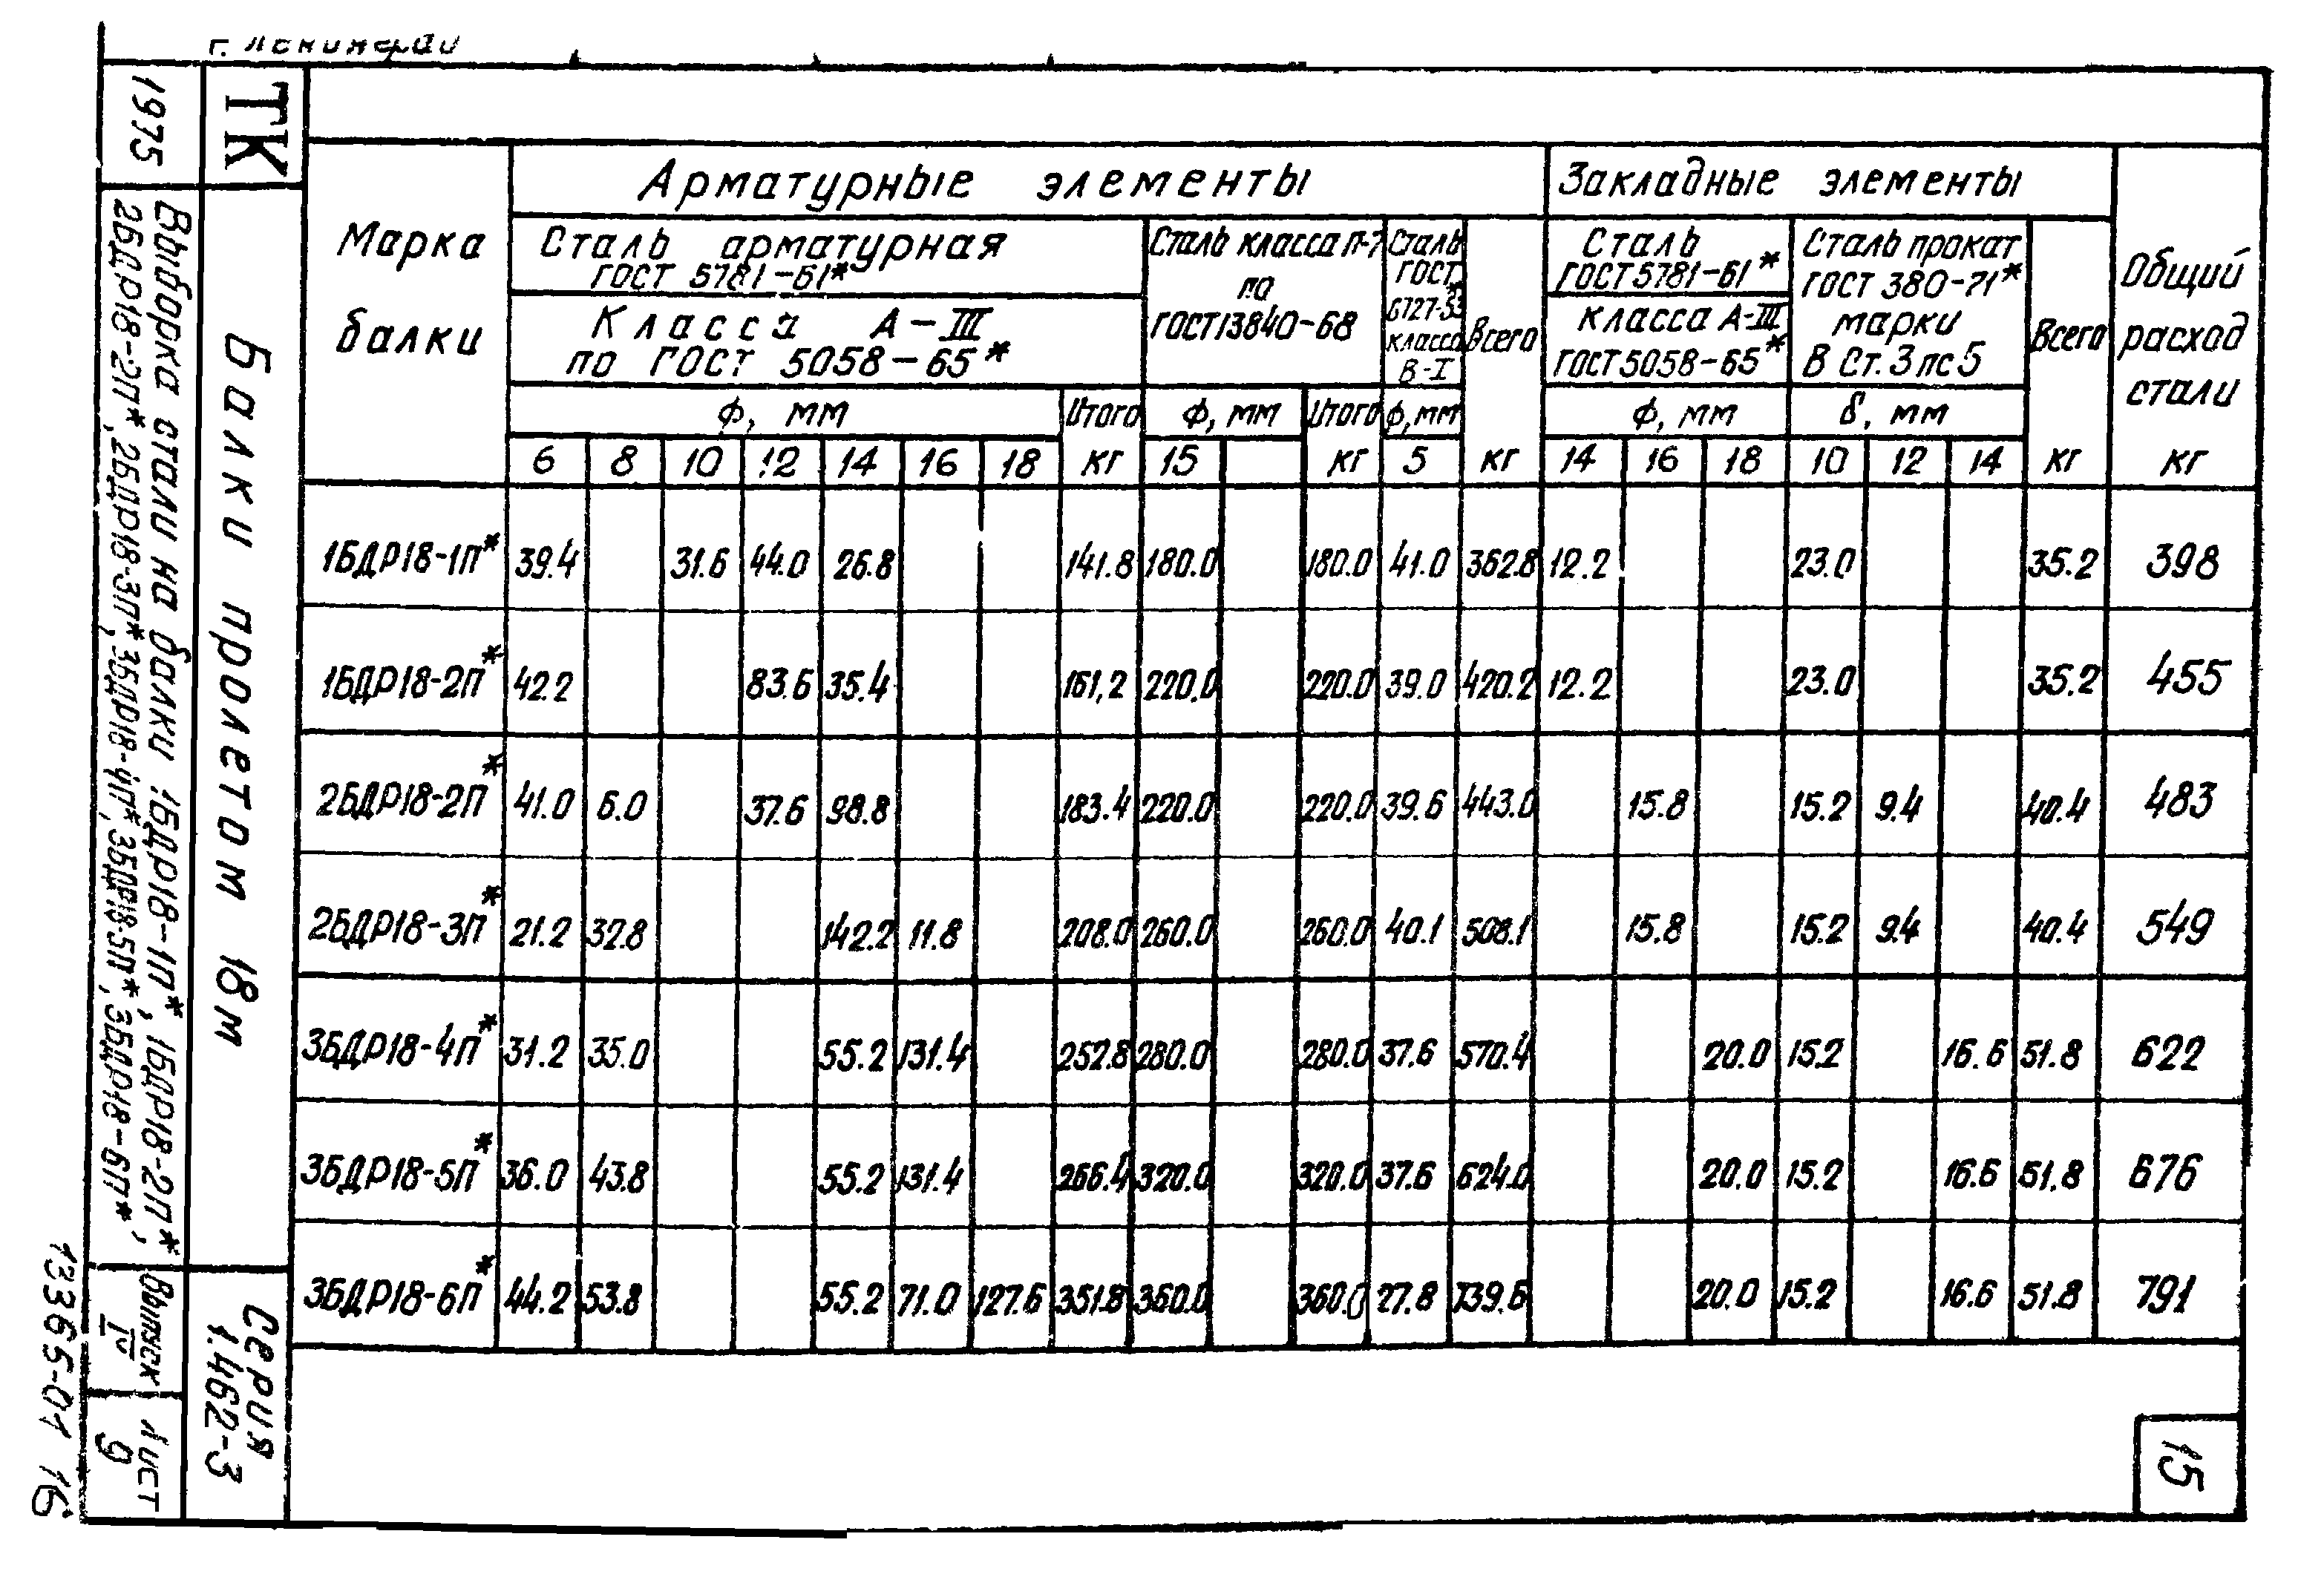 г. Ленинград
ТК
1975
Балки пролетом 18м
Выборка стали на балки 1БДР18-1П*, 1БДР18-2П*
2БДР18-2П*, 2БДР18-3П*, 3БДР18-4П*, 3БДР18-5П*, 3БДР18-6П*,
Серия
1.462-3
Выпуск
IV
Лист
9
13365-01 16
Марка балки
Арматурные элементы
Закладные элементы
Общий расход стали
кг
Сталь арматурная
ГОСТ 5781-61*
Класса А-III
по ГОСТ 5058-65*
Сталь класса П-7
по
ГОСТ 13840-68
Сталь
ГОСТ
6727-53*
класса
В-I
Всего
Сталь
ГОСТ 5781-61*
класса А-III
ГОСТ 5058-65*
Сталь прокат
ГОСТ 380-71*
марки
В Ст. 3 пс 5
Всего
ф, мм Итого ф, мм Итого ф, мм ф, мм δ, мм
6 8 10 12 14 16 18 кг 15 кг 5 кг 14 16 18 10 12 14 кг
1БДР18-1П* 39.4 31.6 44.0 26.8 141.8 180.0 180.0 41.0 362.8 12.2 23.0 35.2 398
1БДР18-2П* 42.2 83.6 35.4 161,2 220.0 220.0 39.0 420.2 12.2 23.0 35.2 455
2БДР18-2П* 41.0 6.0 37.6 98.8 183.4 220.0 220.0 39.6 443.0 15.8 15.2 9.4 40.4 483
2БДР18-3П* 21.2 32.8 142.2 11.8 208.0 260.0 260.0 40.1 508.1 15.8 15.2 9.4 40.4 549
3БДР18-4П* 31.2 35.0 55.2 131.4 252.8 280.0 280.0 37.6 570.4 20.0 15.2 16.6 51.8 622
3БДР18-5П* 36.0 43.8 55.2 131.4 266.4 320.0 320.0 37.6 624.0 20.0 15.2 16.6 51.8 676
3БДР18-6П* 44.2 53.8 55.2 71.0 127.6 351.8 360.0 360.0 27.8 739.6 20.0 15.2 16.6 51.8 791
15